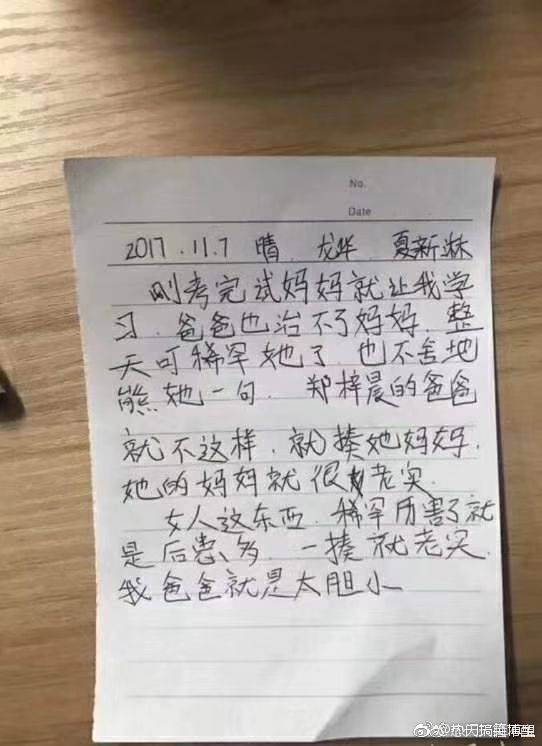 No.
Date
2017.11.7 晴. 龙华. 夏新淋
刚考完试妈妈就让我学
习.爸爸也治不了妈妈.整
天可稀罕她了.也不舍地
熊她一句. 郑梓晨的爸爸
就不这样.就揍她妈妈.
她的妈妈就很老实.
女人这东西.稀罕历害了就
是后患多.一揍就老实.
我爸爸就是太胆小